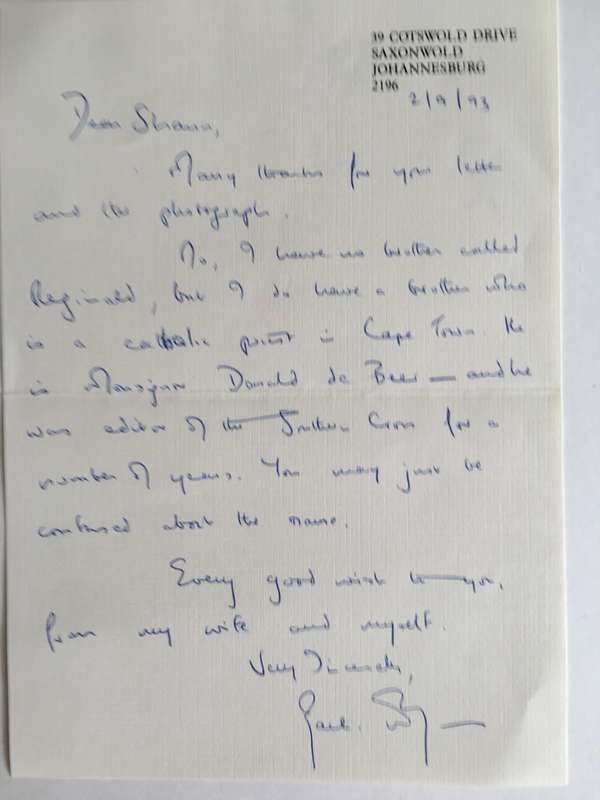 39 COTSWOLD DRIVE
SAXONWOLD
JOHANNESBURG
2196
2/9/93
Dear
Many thanks for your letter
and the photograph.
No, I have no brother called
Reginald, but I do have a brother who
is a catholic priest in Cape Town. He
is Donald de Beer — and he
was editor of the Southern Cross for a
number of years. You may just be
confused about the name.
Every good wish to you,
from my wife and myself.
Very Sincerely,